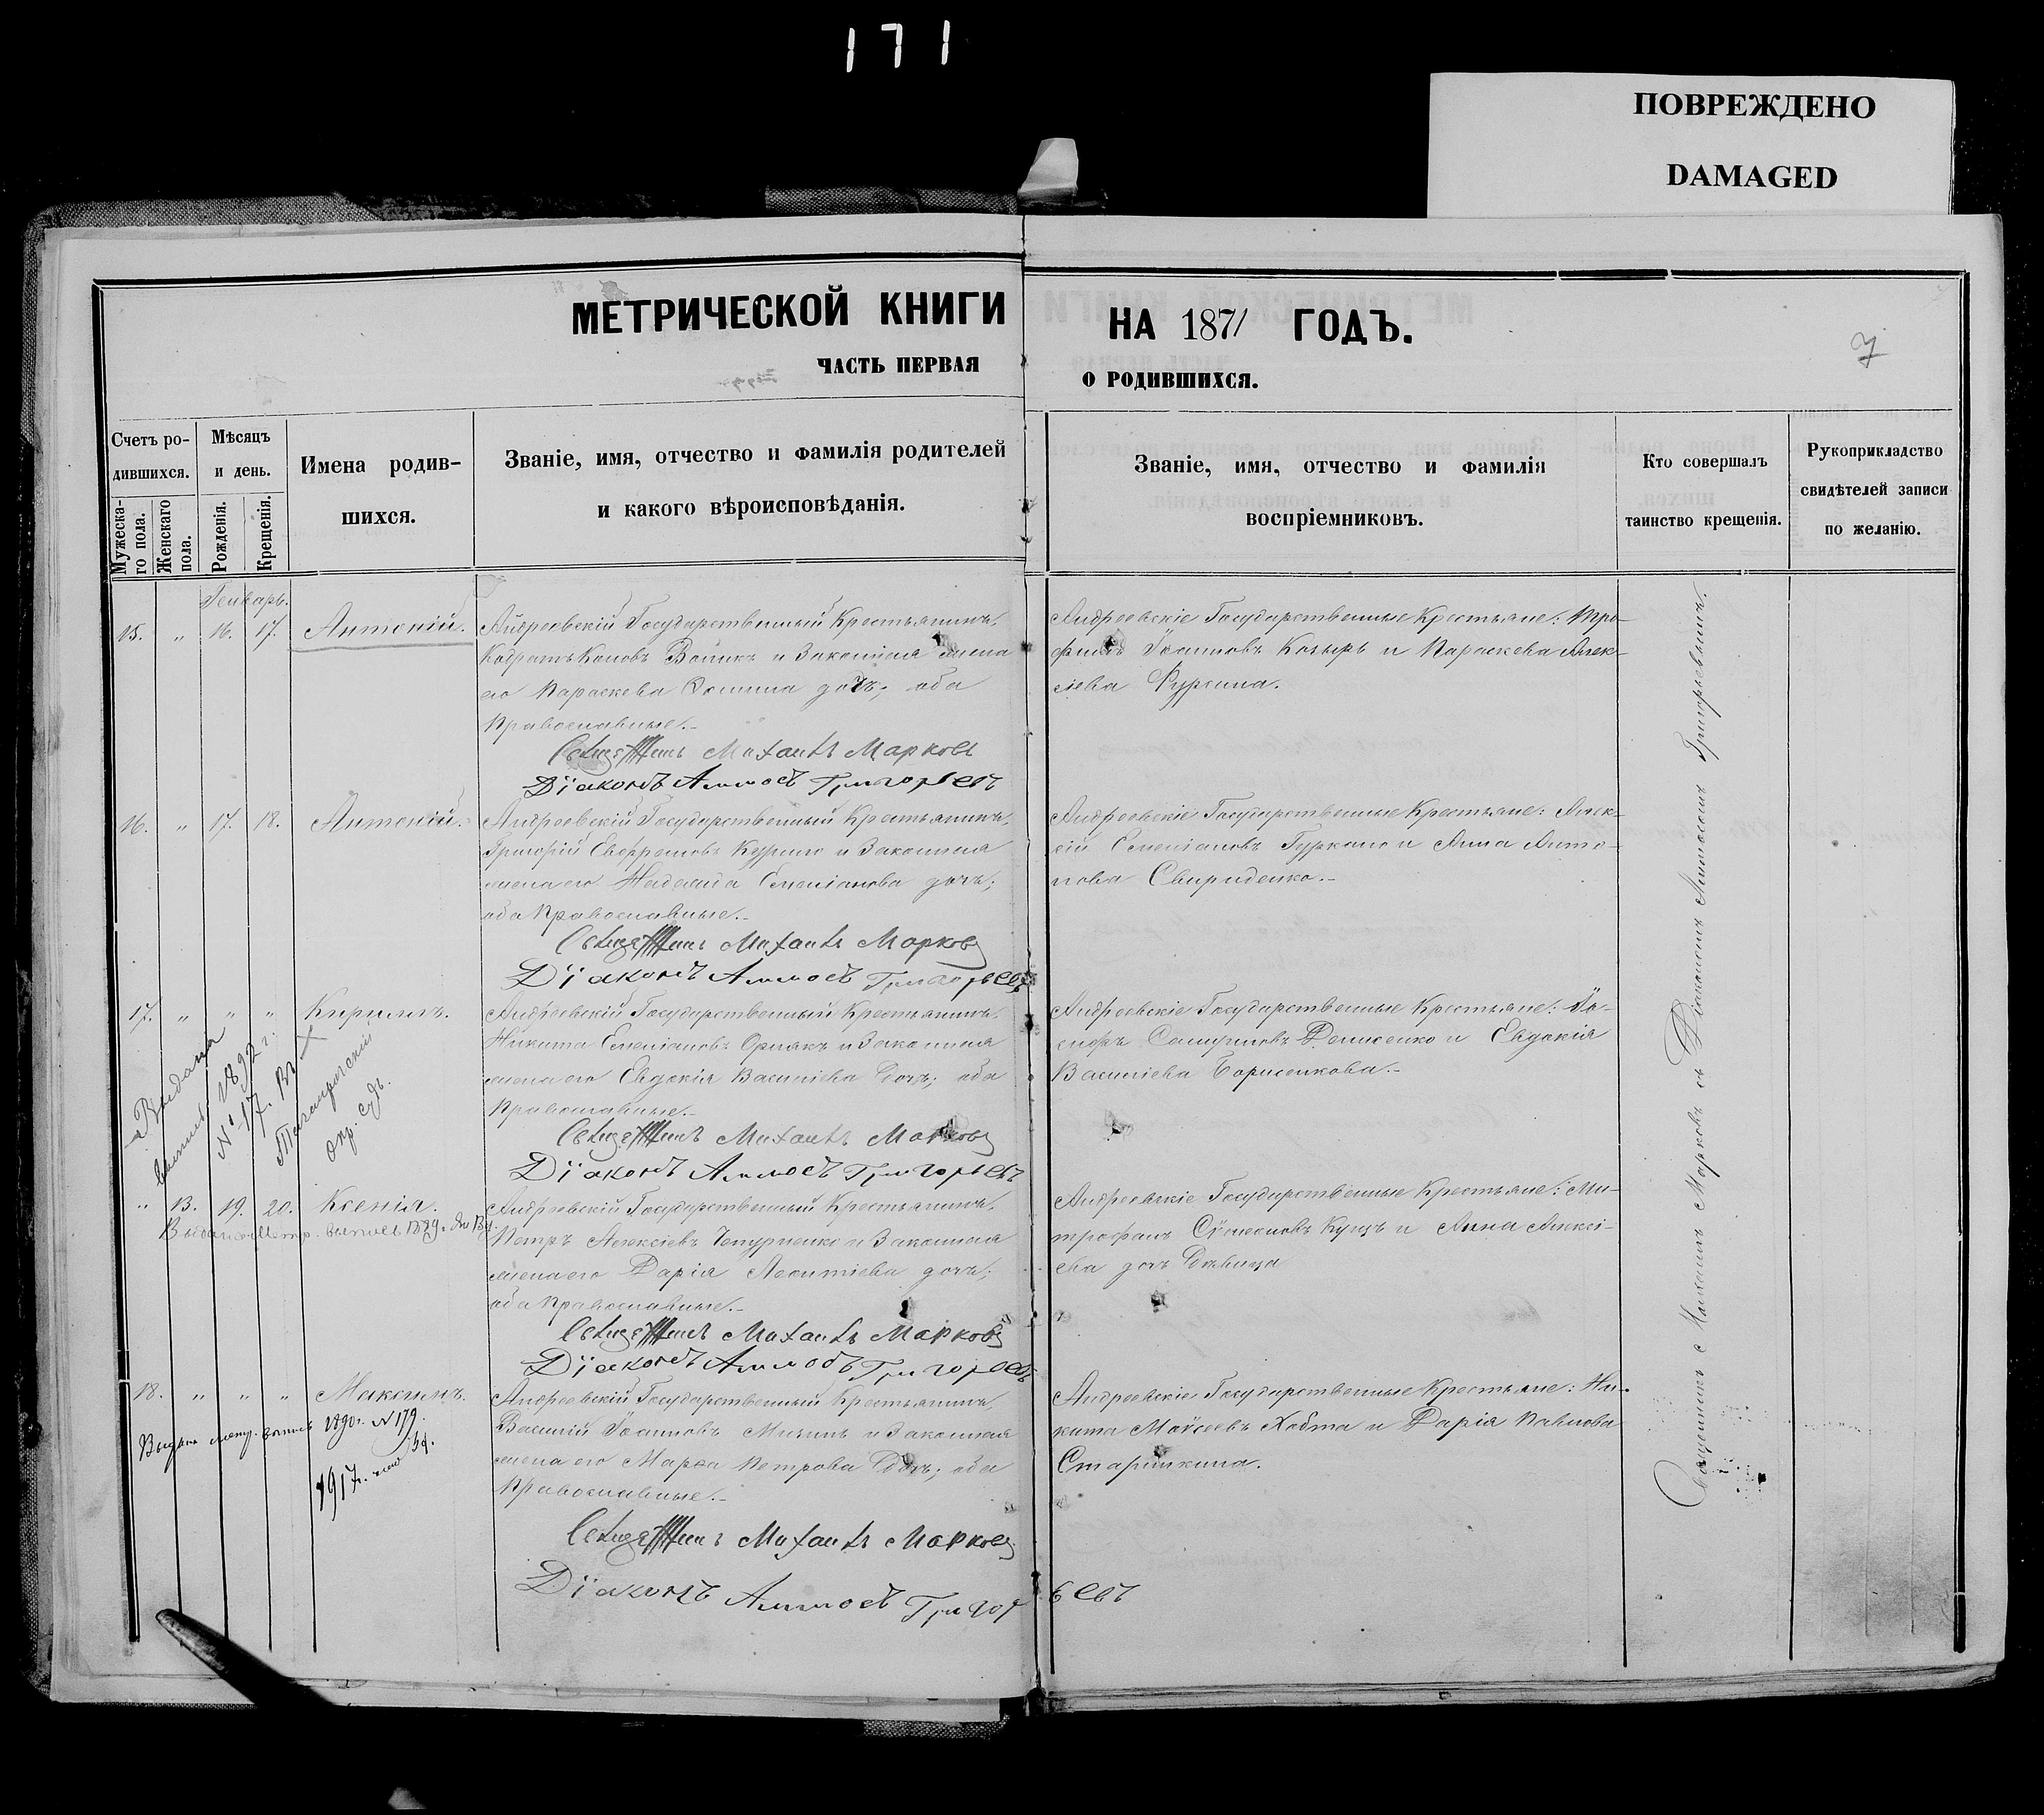 171
ПОВРЕЖДЕНО
DAMAGED
МЕТРИЧЕСКОЙ КНИГИ НА 1871 ГОДЪ.
ЧАСТЬ ПЕРВАЯ О РОДИВШИХСЯ.
7
Счетъ ро-
дившихся.
Мужеска-
го пола.
Женскаго
пола.
Мѣсяцъ
и день.
Рожденія.
Крещенія.
Имена родив-
шихся.
Званіе, имя, отчество и фамилія родителей
и какого вѣроисповѣданія.
Званіе, имя, отчество и фамилія
воспріемниковъ.
Кто совершалъ
таинство крещенія.
Рукоприкладство
свидѣтелей записи
по желанію.
Генварь.
15. " 16. 17. Антоній.
Андреевскій Государственный Крестьянинъ,
и Законная жена
его Параскева дочь; оба
Православные.-
Священникъ Михаилъ Марковъ
Діаконъ Аммосъ Григорьевъ
Андреевскіе Государственные Крестьяне: Тро-
фимъ Іоанновъ Козырь и Параскева Алек-
сіева
16. " 17. 18. Антоній.
Андреевскій Государственный Крестьянинъ,
Григорій и Законная
жена его Надежда Емеліанова дочь;
оба Православные.-
Священникъ Михаилъ Марковъ
Діаконъ Аммосъ Григорьевъ
Андреевскіе Государственные Крестьяне: Алек-
сій Емеліановъ и Анна Анто-
нова Свириденко.-
17. " " " Кириллъ.
Андреевскій Государственный Крестьянинъ,
Никита Емеліановъ и Законная
жена его Евдокія Василіева дочь; оба
Православные.-
Священникъ Михаилъ Марковъ
Діаконъ Аммосъ Григорьевъ
Андреевскіе Государственные Крестьяне: Іо-
сифъ Денисенко и Евдокія
Василіева Борисенкова.-
Выдана
выпись 1892 г.
№ 17. Въ
Таганрогскій
окр. судъ.
" 13. 19. 20. Ксенія.
Андреевскій Государственный Крестьянинъ,
Петръ Алексіевъ и Законная
жена его Дарія Леонтіева дочь;
оба Православные.-
Священникъ Михаилъ Марковъ
Діаконъ Аммосъ Григорьевъ
Андреевскіе Государственные Крестьяне: Ми-
трофанъ Сѵмеоновъ Куцъ и Анна Алексі-
ева дочь Дѣвица
Выдана метр. выпись
18. " " " Максимъ.
Андреевскій Государственный Крестьянинъ,
Василій Іоанновъ и Законная
жена его Петрова дочь; оба
Православные.-
Священникъ Михаилъ Марковъ
Діаконъ Аммосъ Григорьевъ
Андреевскіе Государственные Крестьяне: Ни-
кита Моѵсеевъ Хобта и Дарія Павлова
Старишкина.
Выдана метр. выпись 1890 г. №179.
1917 г.
Священникъ Михаилъ Марковъ съ Діакономъ Аммосомъ Григорьевымъ.